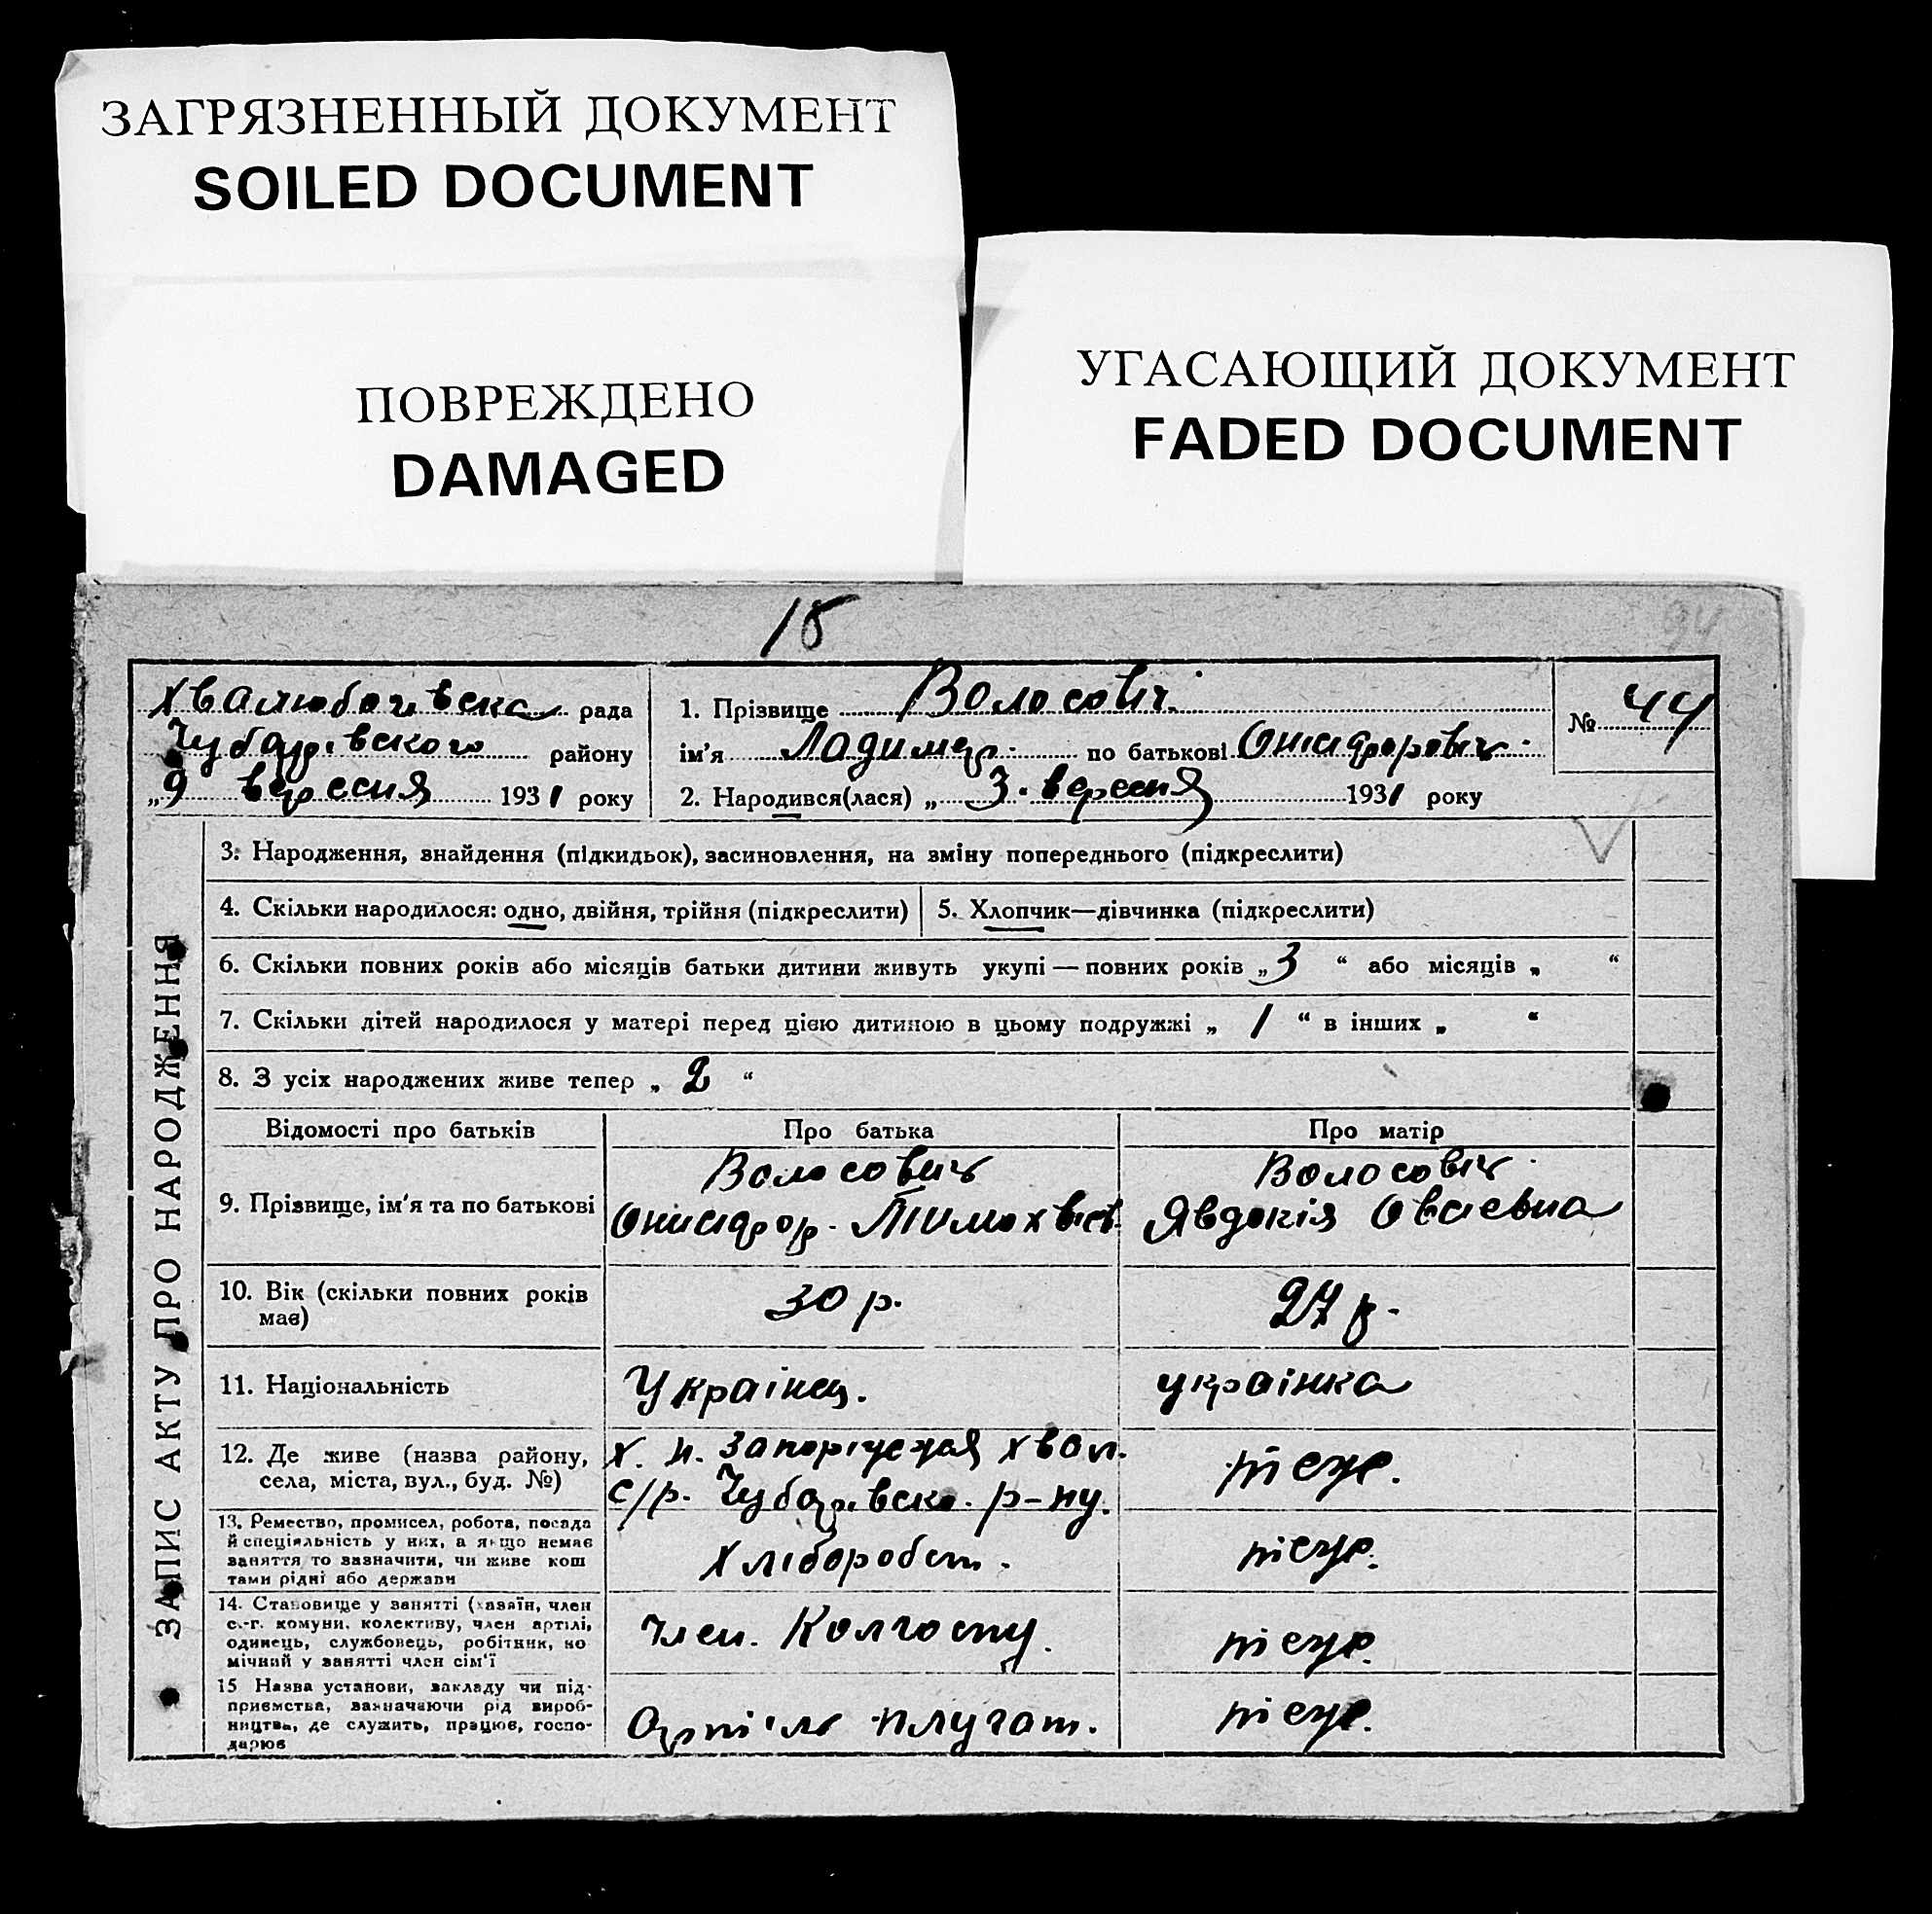 ЗАГРЯЗНЕННЫЙ ДОКУМЕНТ
SOILED DOCUMENT
ПОВРЕЖДЕНО
DAMAGED
УГАСАЮЩИЙ ДОКУМЕНТ
FADED DOCUMENT
18
94
Хвалибогивська рада
Чубарівського району
„9 вересня 1931 року
1. Прізвище Волосовіч
ім'я Ладимер по батькові Онисідорович
2. Народився(лася) „ 3. вересня 1931 року
№ 44
ЗАПИС АКТУ ПРО НАРОДЖЕННЯ
3. Народження, знайдення (підкидьок), засиновлення, на зміну попереднього (підкреслити)
4. Скільки народилося: одно, двійня, трійня (підкреслити)
5. Хлопчик—дівчинка (підкреслити)
6. Скільки повних років або місяців батьки дитини живуть укупі — повних років „ 3 “ або місяців „ “
7. Скільки дітей народилося у матері перед цією дитиною в цьому подружжі „ 1 “ в інших „ “
8. З усіх народжених живе тепер „ 2 “
Відомості про батьків
Про батька
Про матір
9. Прізвище, ім'я та по батькові
Волосович
Онисідор. Тимохвієв.
Волосовіч
Явдокія Овсієвна
10. Вік (скільки повних років
має)
30 р.
27 р.
11. Національність
Українец.
українка
12. Де живе (назва району,
села, міста, вул., буд. №)
Х. Н. Запоріжська Хвал.
с/р. Чубарівсько. р-ну.
теж.
13. Ремество, промисел, робота, посада
й спеціяльність у них, а якщо немає
заняття то зазначити, чи живе кош
тами рідні або держави
Хлібороб
теж.
14. Становище у занятті (хазяїн, член
с.-г. комуни, колективу, член артілі,
одинець, службовець, робітник, по
мічний у занятті член сім'ї
член. Колгоспу.
теж.
15 Назва установи, закладу чи під-
приємства, зазначаючи рід вироб-
ництва, де служить, працює, госпо-
дарює
Артіль плугат.
теж.